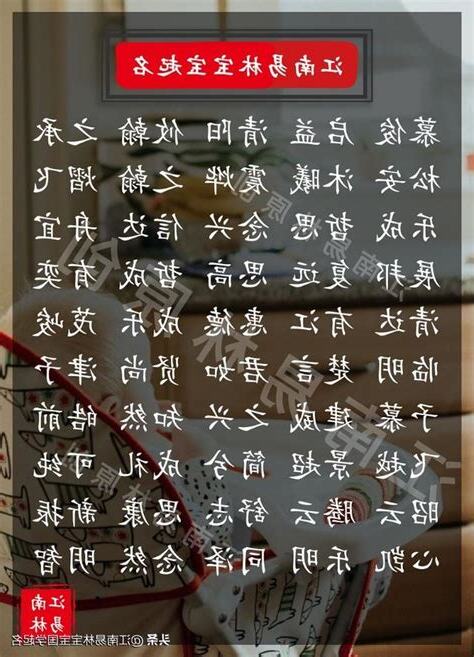 江南易林宝宝起名
慕俊 启益 清阳 攸翰 之承
松安 沐曦 震烨 之翰 熠飞
乐成 哲思 念兴 信达 舟宜
展邦 夏远 思高 哲成 有奕
清达 有江 惠德 成乐 茂峻
临明 楚言 君如 贤尚 津子
子慕 建威 之兴 知然 皓前
飞越 景超 简兮 成礼 可纯
昭云 腾云 舒志 思康 新振
心凯 乐明 同泽 念然 明智
江南
易林
头条@江南易林宝宝国学起名